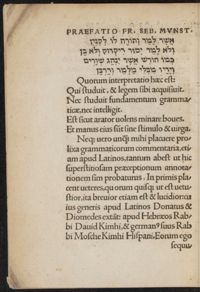 PRAEFATIO FR. SEB. MVNST.
אשר למד ותורה לו לקנין
ולא למד יסוד דקדוק ולא בן
כמו חורש אשר ינהג שורים
וידיו מבלי מלמד ודרבן
Quorum interpretatio hæc est:
Qui studuit, & legem sibi acquisiuit.
Nec studuit fundamentum gramma
ticæ, nec intelligit.
Est sicut arator uolens minare boues.
Et manus eius sint sine stimulo & uirga.
Neq; uero unq̃ mihi placuere pro
lixa grammaticorum commentaria, etι
am apud Latinos, tantum abest ut hic
superstitiosam præceptionum annota
tionem sim probaturus. In primis pla
cent ueteres, quorum quisq; ut est uetu
stior, ita breuior etiam est & lucidior. Cu
ius generis apud Latinos Donatus &
Diomedes extāt: apud Hebræos Rab/
bi Dauid Kimhi, & germanꝰ suus Rab
bi Mosche Kimhi Hispani. Eorum ego
sequu/